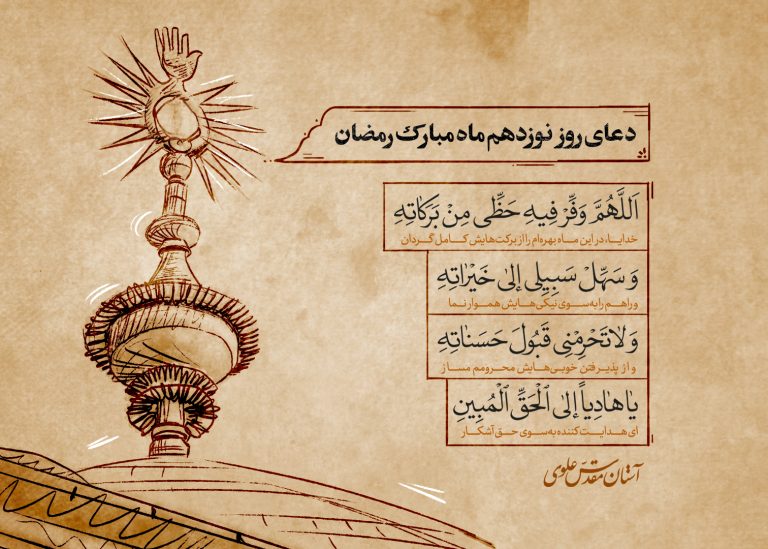 دعای روز نوزدهم ماه مبارک رمضان
اَللَّهُمَّ وَفِّرْ فِیهِ حَظِّی مِنْ بَرَکاتِهِ
خدایا، در این ماه بهره‌ام را از برکت‌هایش کامل گردان
وَ سَهِّلْ سَبِیلِی إِلیٰ خَیْراتِهِ
و راهم را به‌سوی نیکی‌هایش هموار نما
وَ لا تَحْرِمْنِی قَبُولَ حَسَناتِهِ
و از پذیرفتن خوبی‌هایش محرومم مساز
یا هادِیاً إِلَی الْحَقِّ الْمُبِینِ
ای هدایت‌کننده به‌سوی حق آشکار
آستان مقدس علوی